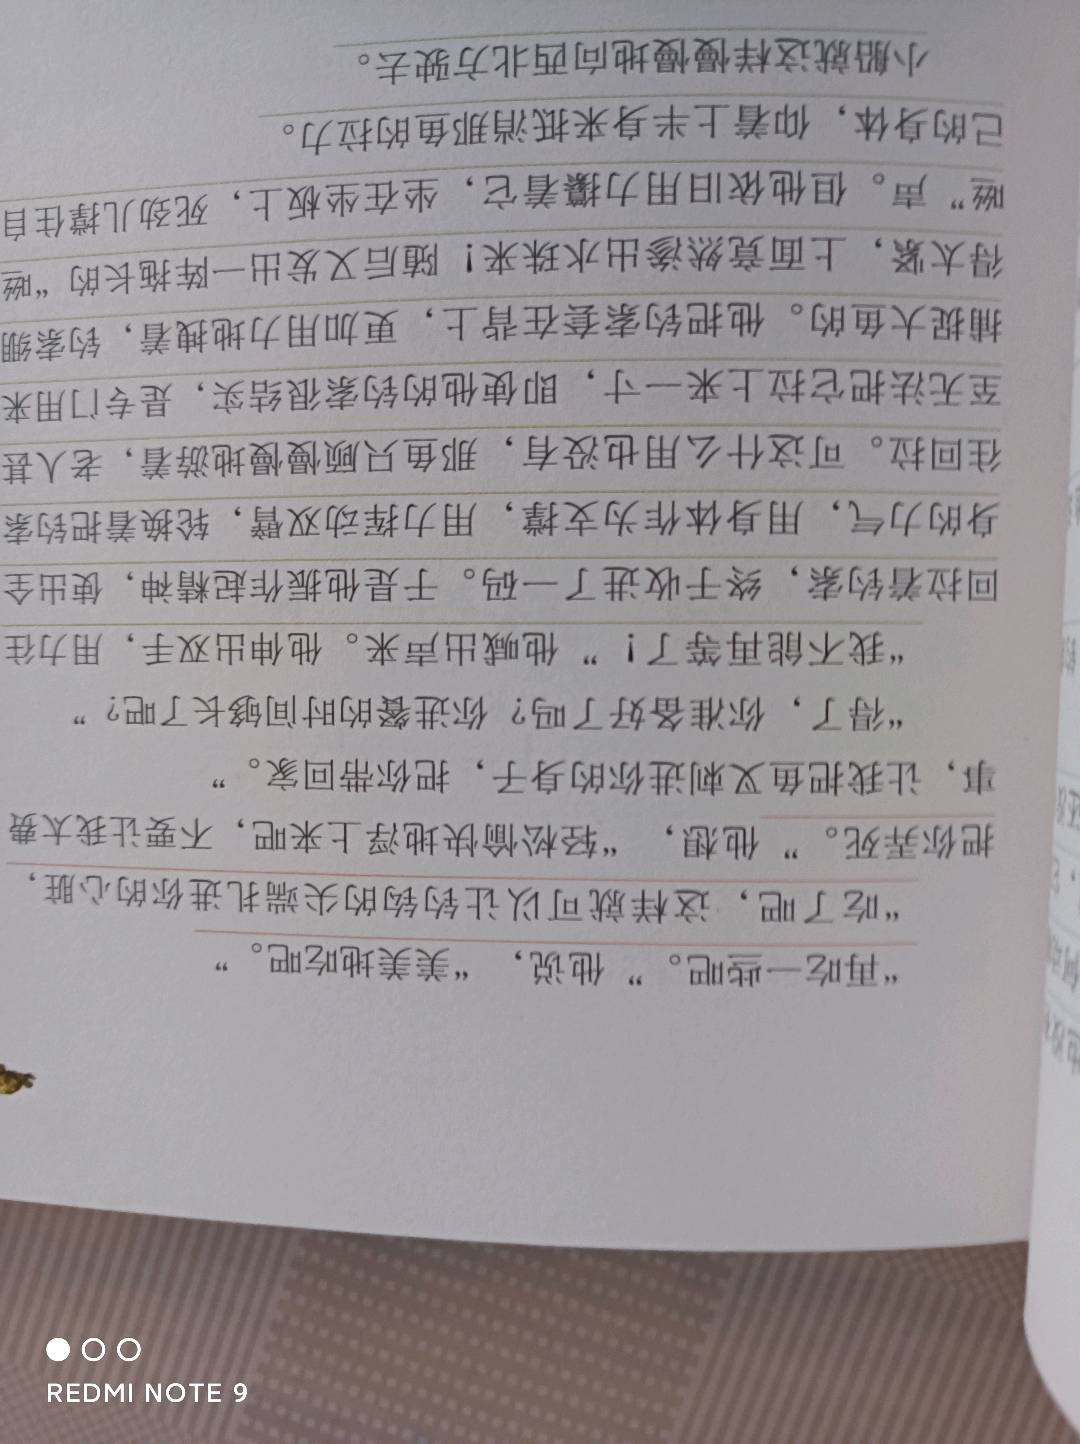 “再吃一些吧。”他说，“美美地吃吧。”
“吃了吧，这样就可以让钓钩的尖端扎进你的心脏，
把你弄死。”他想，“轻松愉快地浮上来吧，不要让我太费
事，让我把鱼叉刺进你的身子，把你带回家。”
“得了，你准备好了吗？你进餐的时间够长了吧？”
“我不能再等了！”他喊出声来。他伸出双手，用力往
回拉着钓索，终于收进了一码。于是他振作起精神，使出全
身的力气，用身体作为支撑，用力挥动双臂，轮换着把钓索
往回拉。可这什么用也没有，那鱼只顾慢慢地游着，老人甚
至无法把它拉上来一寸，即使他的钓索很结实，是专门用来
捕捉大鱼的。他把钓索套在背上，更加用力地拽着，钓索绷
得太紧，上面竟然渗出水珠来！随后又发出一阵拖长的“咝
咝”声。但他依旧用力攥着它，坐在坐板上，死劲儿撑住自
己的身体，仰着上半身来抵消那鱼的拉力。
小船就这样慢慢地向西北方驶去。
REDMI NOTE 9